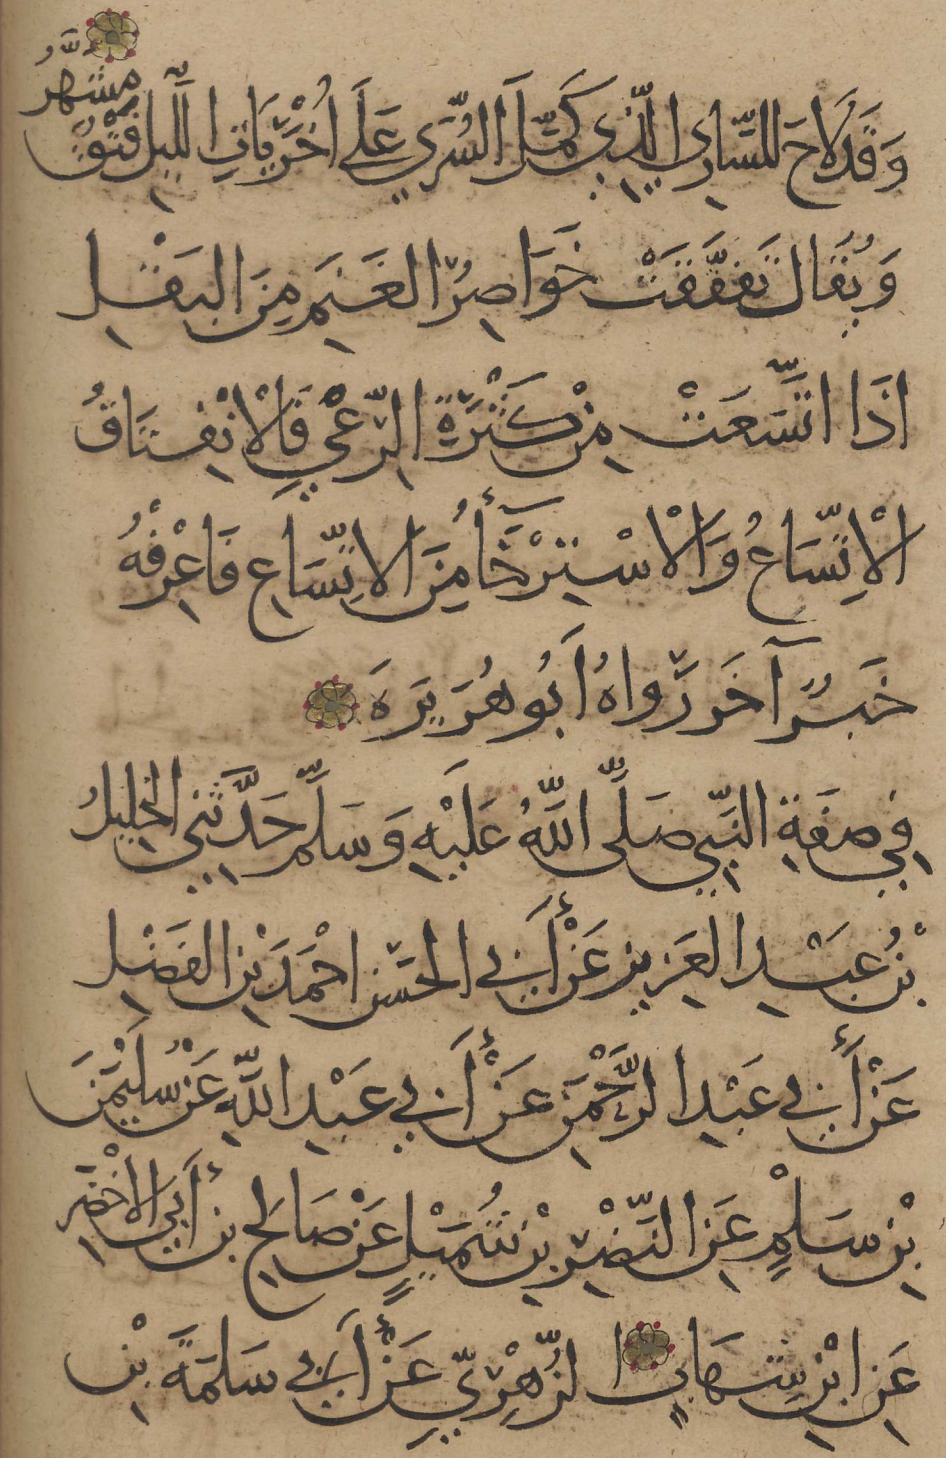 وَقَدْ لَاحَ لِلسَّارِي الَّذِي كَمَّلَ السُّرَى عَلَى أُخْرَيَاتِ اللَّيْلِ فَتْقٌ
مُشَهَّرُ
وَيُقَالُ تَفَتَّقَتْ خَوَاصِرُ الغَنَمِ مِنَ البَقْلِ
اذَا اتَّسَعَتْ مِنْ كَثْرَةِ الرَّعْيِ فَالْانْفِتَاقُ
الْاتِّسَاعُ وَالْاسْتِرْخَآءُ مِنَ الاتِّسَاعِ فَاعْرِفْهُ
خَبَرٌ آخَر رَوَاهُ أَبُو هُرَيرَةَ
فِي صِفَةِ النَّبِيِّ صَلَّى اللَّهُ عَلَيْهِ وَسَلَّم حَدَّثَنِي الخَلِيلُ
بْنُ عَبْدِ العَزِيزِ عَنْ أَبِي الحَسَنِ احْمَدَ بْنِ الفَضْلِ
عَنْ أَبِي عَبْدِ الرَّحْمَنِ عَنْ أَبِي عَبْدِ اللَّهِ عَنْ سُلَيْمَنَ
بْنِ سَلْمٍ عَنِ النَّضْرِ بْنِ شُمَيْلٍ عَنْ صَالِحِ بن أَبِي الاخْضَرِ
عَنِ ابْنِ شِهَابٍ الزُّهْرِيِّ عَنْ أَبِي سَلمَةَ بْنِ